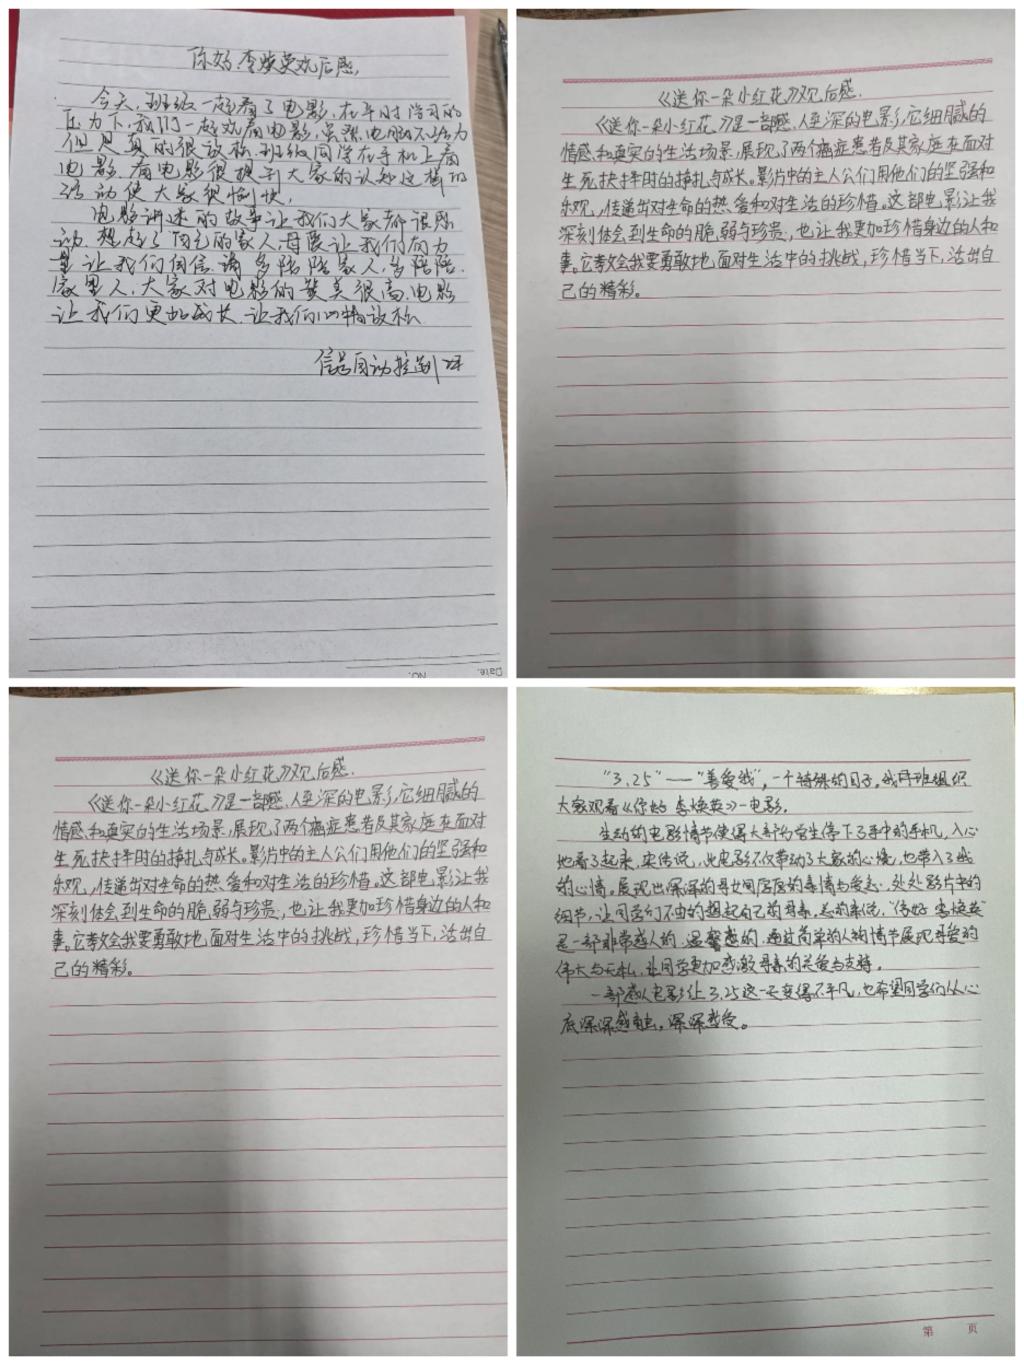 你好,李焕英观后感,
今天,班级一起看了电影,在平时学习的
压力下,我们一起观看电影,虽然电脑不给力
但是真的很放松,班级同学在手机上看
电影,看电影很提到大家的认知这样的
活动使大家很愉快,
电影讲述的故事让我们大家都很感
动,想起了自己的家人,母爱让我们有力
量让我们自信,请多陪陪家人,多陪陪,
家里人,大家对电影的赞美很高,电影
让我们更加成长,让我们心情放松
信号自动控制
Date.
NO.
《送你一朵小红花》观后感.
《送你一朵小红花》是一部感人至深的电影,它细腻的
情感和真实的生活场景,展现了两个癌症患者及其家庭在面对
生死抉择时的挣扎与成长。影片中的主人公们用他们的坚强和
乐观,传递出对生命的热爱和对生活的珍惜。这部电影让我
深刻体会到生命的脆弱与珍贵,也让我更加珍惜身边的人和
事。它教会我要勇敢地面对生活中的挑战,珍惜当下,活出自
己的精彩。
《送你一朵小红花》观后感.
《送你一朵小红花》是一部感人至深的电影,它细腻的
情感和真实的生活场景,展现了两个癌症患者及其家庭在面对
生死抉择时的挣扎与成长。影片中的主人公们用他们的坚强和
乐观,传递出对生命的热爱和对生活的珍惜。这部电影让我
深刻体会到生命的脆弱与珍贵,也让我更加珍惜身边的人和
事。它教会我要勇敢地面对生活中的挑战,珍惜当下,活出自
己的精彩。
"3.25"—"善爱我",一个特殊的日子。我开班组织
大家观看《你好 李焕英》一电影.
生动的电影情节使得大部分学生停下了手中的手机,入心
地看了起来,来传说,此电影不仅带动了大家的心境,也带入了我
的心情。展现出深深的母女间厚厚的亲情与爱意,处处影片中的
细节,让同学们不由的想起自己的母亲,总的来说,"你好 李焕英"
是一部非常感人的,温馨感的,通过简单的人物情节展现母爱的
伟大与无私,让同学更加感激母亲的关爱与支持。
一部感人电影让3.25这一天变得不平凡,也希望同学们从心
底深深感触,深深感受。
第 页